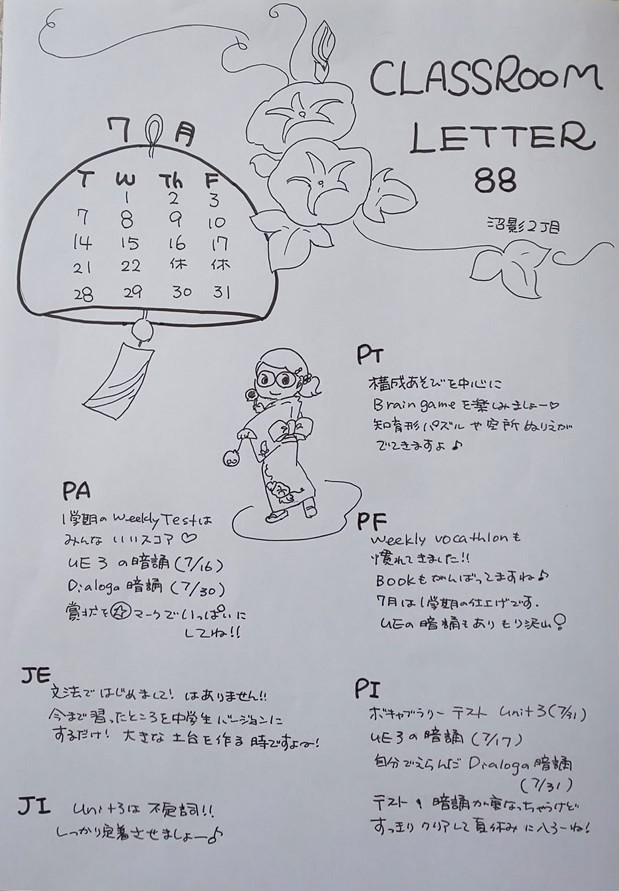 CLASSROOM
LETTER
88
沼影2丁目
7月
T W Th F
1 2 3
7 8 9 10
14 15 16 17
21 22 休 休
28 29 30 31
PT
構成あそびを中心に
Brain gameを楽しみましょー♡
知育形パズルや空所ぬりえが
でてきますよ♪
PA
1学期のWeekly Testは
みんないいスコア♡
UE 3 の暗誦 (7/16)
Dialoga 暗誦 (7/30)
賞状を マークでいっぱいに
してね!!
PF
Weekly vocathlonも
慣れてきました!!
BOOKもがんばってますね♪
7月は1学期の仕上げです.
UEの暗誦もありもり沢山
JE
文法ではじめまして! はありません!!
今まで習ったところを中学生バージョンに
するだけ! 大きな土台を作る時ですよ〜!
PI
ボキャブラリーテスト Unit3(7/31)
UE3の暗誦 (7/17)
自分でえらんだ Dialoga暗誦
(7/31)
テスト 暗誦が重なっちゃうけど
すっきりクリアして夏休みに入ろーね!
JI Unit3は不定詞!!
しっかり定着させましょー♪